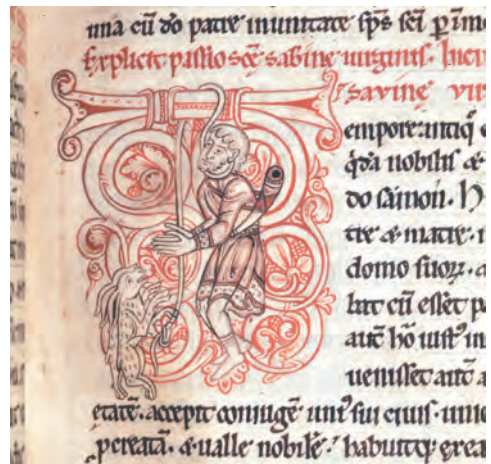 una cū dō patre inunitate sp̄s sc̄i p
Explicit passio scē sabine uirginis. Inci
savine vir
Tempore antiq̄
qd̄a nobilis &
do samon. H
tre & matre.
domo suoꝝ. a
bat cū esset p
aut̄ hō iustꝰ in
uenisset aut̄ a
etatē. accepit coniugē unꝰ sui ciuis.
pcreatā. & ualle nobilē. habuitq̄